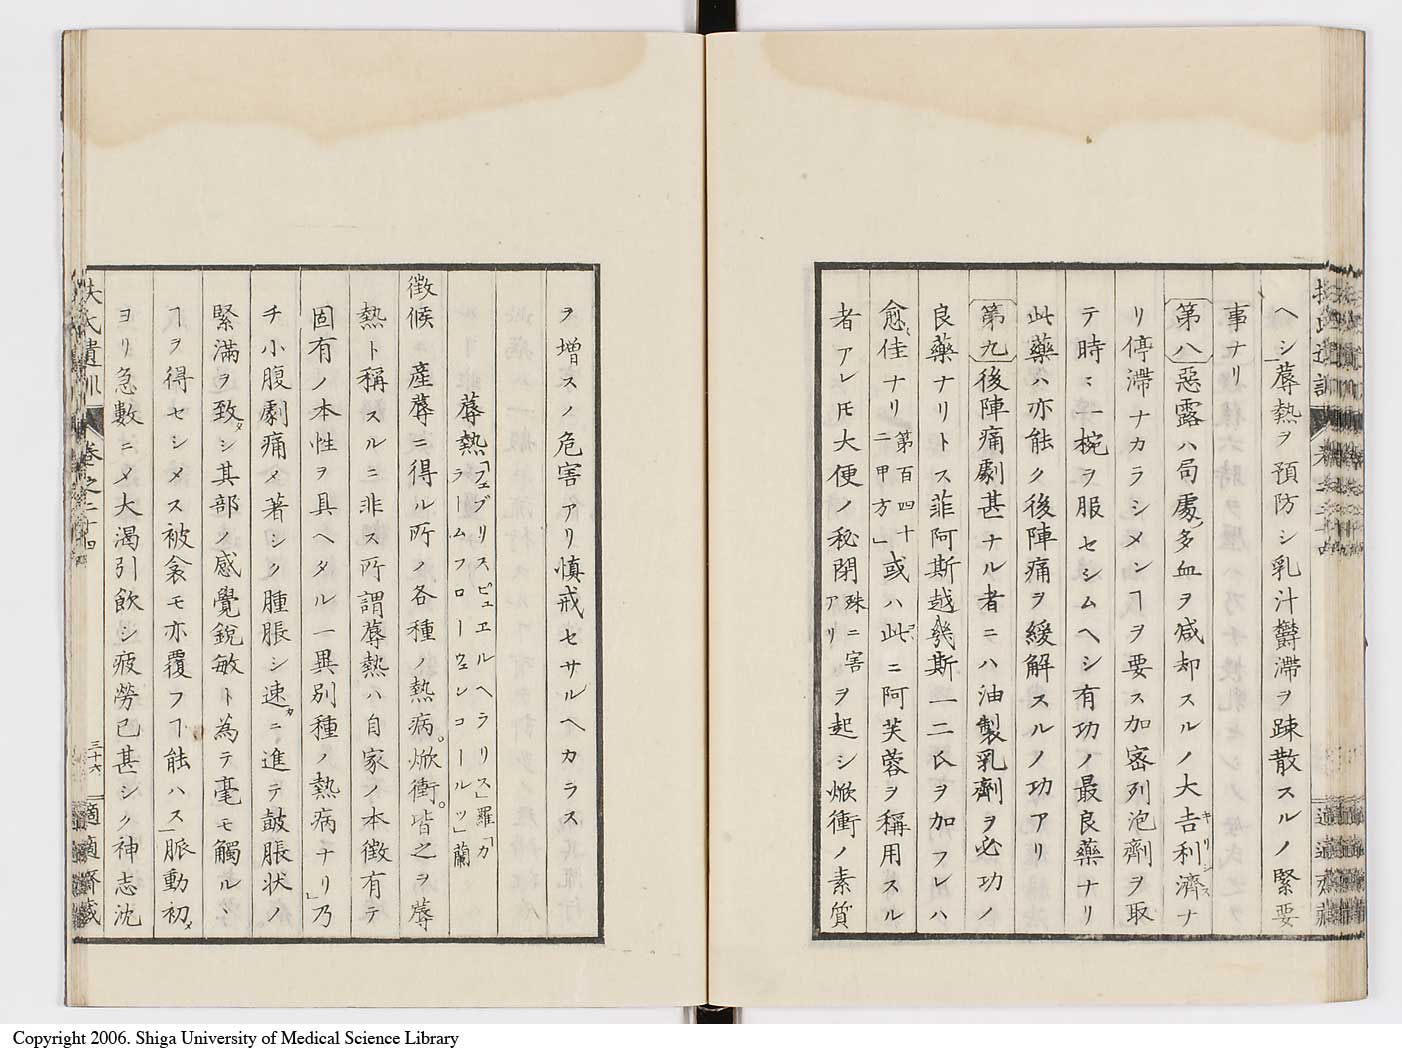 ヘシ蓐熱ヲ預防シ乳汁欝滞ヲ疎散スルノ緊要
事ナリ
第八惡露ハ局處多血ヲ减却スルノ大吉利濟ナ
キリシス
リ停滞ナカラシメンヿヲ要ス加密列泡劑ヲ取
テ時々一椀ヲ服セシムヘシ有功ノ最良薬ナリ
此薬ハ亦能ク後陣痛ヲ緩解スルノ功アリ
第九後陣痛劇甚ナル者ニハ油製乳劑ヲ必功ノ
良薬ナリトス菲阿斯越幾斯一二氏ヲ加フレハ
愈佳ナリ第百四十二甲方」或ハ此ニ阿芙蓉ヲ稱用スル
者アレ𪜈大便ノ秘閉殊ニ害アリヲ起シ焮衝ノ素質
ヲ増スノ危害アリ慎戒セサルヘカラス
蓐熱「フェブリスピュエルヘラリス」羅「カラームフローウェンコールツ」蘭
徴候 産蓐ニ得ル所ノ各種ノ熱病。焮衝。皆之ヲ蓐
熱ト稱スルニ非ス所謂蓐熱ハ自家ノ本徴有テ
固有ノ本性ヲ具ヘタル一異別種ノ熱病ナリ」乃
チ小腹劇痛メ著シク腫脹シ速カニ進テ鼓脹状ノ
緊滿ヲ致シ其部ノ感覺銳敏ト為テ毫モ觸ルヽ
ヿヲ得セシメス被衾モ亦覆フヿ能ハス」脈動初メ
ヨリ急數ニメ大渴引飲シ疲勞已甚シク神志沈
扶氏遺訓
卷之二十四
三十六
適適齋藏
Copyright 2006. Shiga University of Medical Science Library